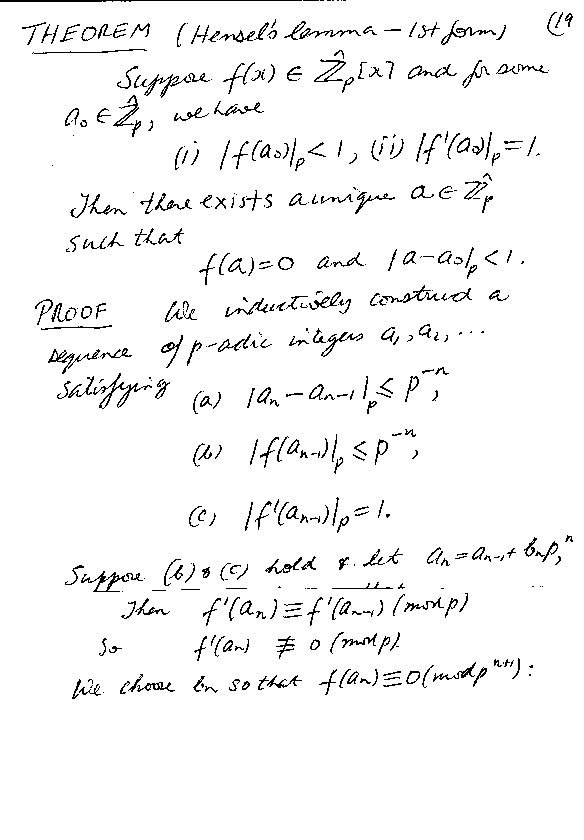 THEOREM (Hensel's lemma – 1st form) (19
Suppose f(x) ∈ Ẑ_p[x] and for some
a₀ ∈ Ẑ_p, we have
(i) |f(a₀)|_p < 1, (ii) |f'(a₀)|_p = 1.
Then there exists a unique a ∈ Ẑ_p
such that
f(a) = 0 and |a – a₀|_p < 1.
PROOF We inductively construct a
sequence of p-adic integers a₁, a₂, ...
satisfying (a) |a_n – a_{n-1}|_p ≤ p^{-n},
(b) |f(a_{n-1})|_p ≤ p^{-n},
(c) |f'(a_{n-1})|_p = 1.
Suppose (b) & (c) hold & let a_n = a_{n-1} + b_n p^n,
Then f'(a_n) ≡ f'(a_{n-1}) (mod p)
So f'(a_n) ≢ 0 (mod p).
We choose b_n so that f(a_n) ≡ 0 (mod p^{n+1}):